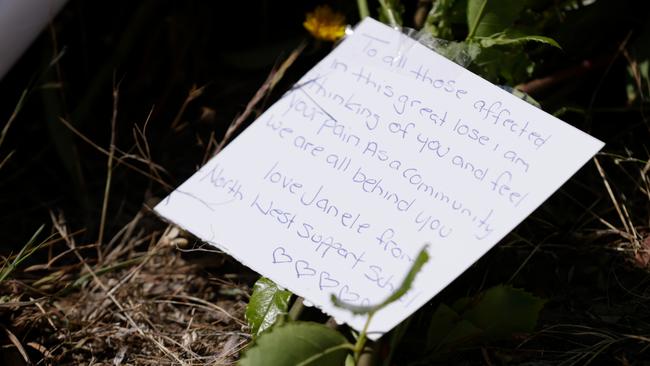 To all those affected
In this great lose, i am
thinking of you and feel
Your pain As a community
we are all behind you
love Janele from
North West Support School